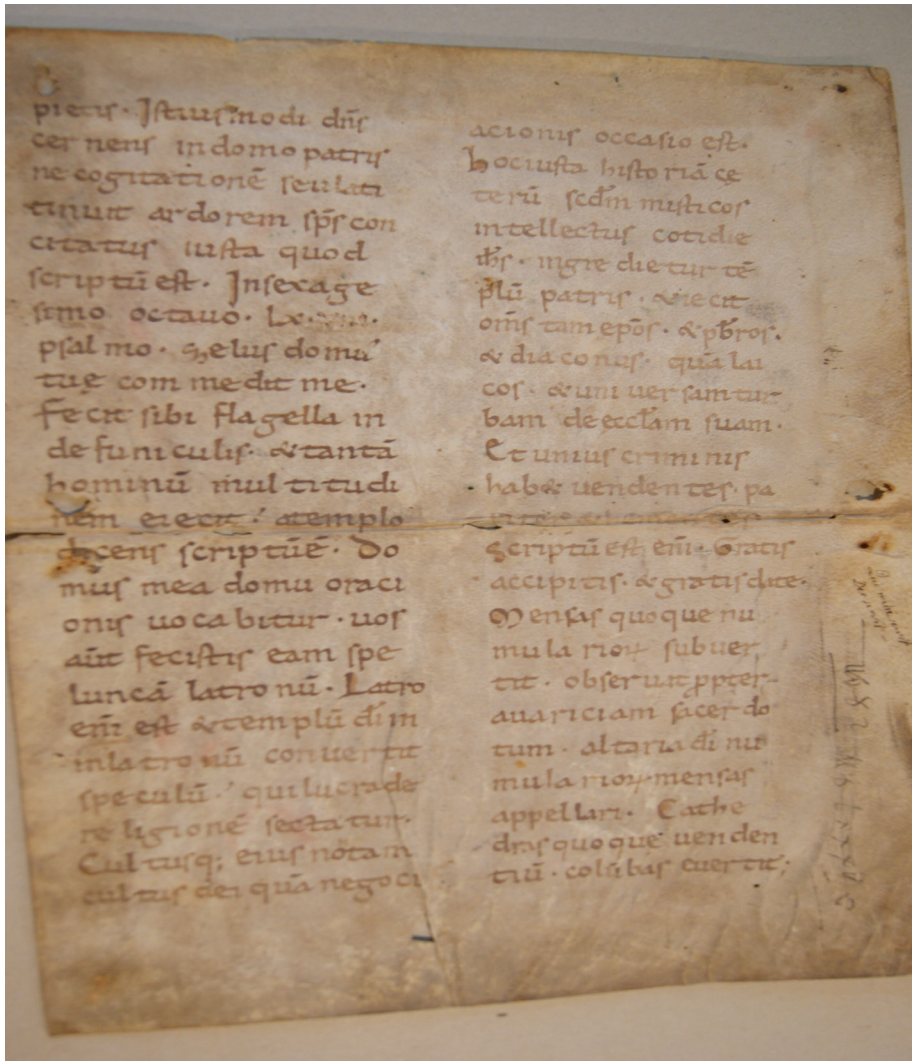 pietis. Istiusmodi dn̄s
cernens in domo patris
ne cogitationē seu lati
tiuit ardorem sp̄s con
citatus iusta quod
scriptū est. Insexage
simo octauo. lx
psalmo. Zelus domu᷑
tuę commedit me.
Fecit sibi flagella in
de funiculis. &tantā
hominū multitudi
nem eiecit. atemplo
dicens scriptū ē. Do
mus mea domu oraci
onis uocabitur. uos
aūt fecistis eam spe
luncā latronū. Latro
eni̅ est &templū di̅ in
inlatronū conuertit
speculū. qui lucra de
religionē sectatur.
Cultusq; eius nōtam
cultus dei quā negoci
acionis occasio est.
hociusta historiā cę
terū scdm̄ misticos
intellectus cotidie
ih̄s. ingredietur tē
plū patris. &eiecit
om̄s tam ep̄os. &pb̄ros.
&diaconus. quā lai
cos. &uniuersam tur
bam de eccl̄am suam.
Et unius criminis
hab& uendentes. pa
scriptū est. eni̅. Gratis
accipitis. &gratis dite.
Mensas quoque nu
mularioꝝ subuer
tit. obseruit ꝓpter
auariciam sacerdo
tum. altaria di̅ nu
mularioꝝ mensas
appellari. Cathe
dras quoque uenden
tiū. colūbas euertit;